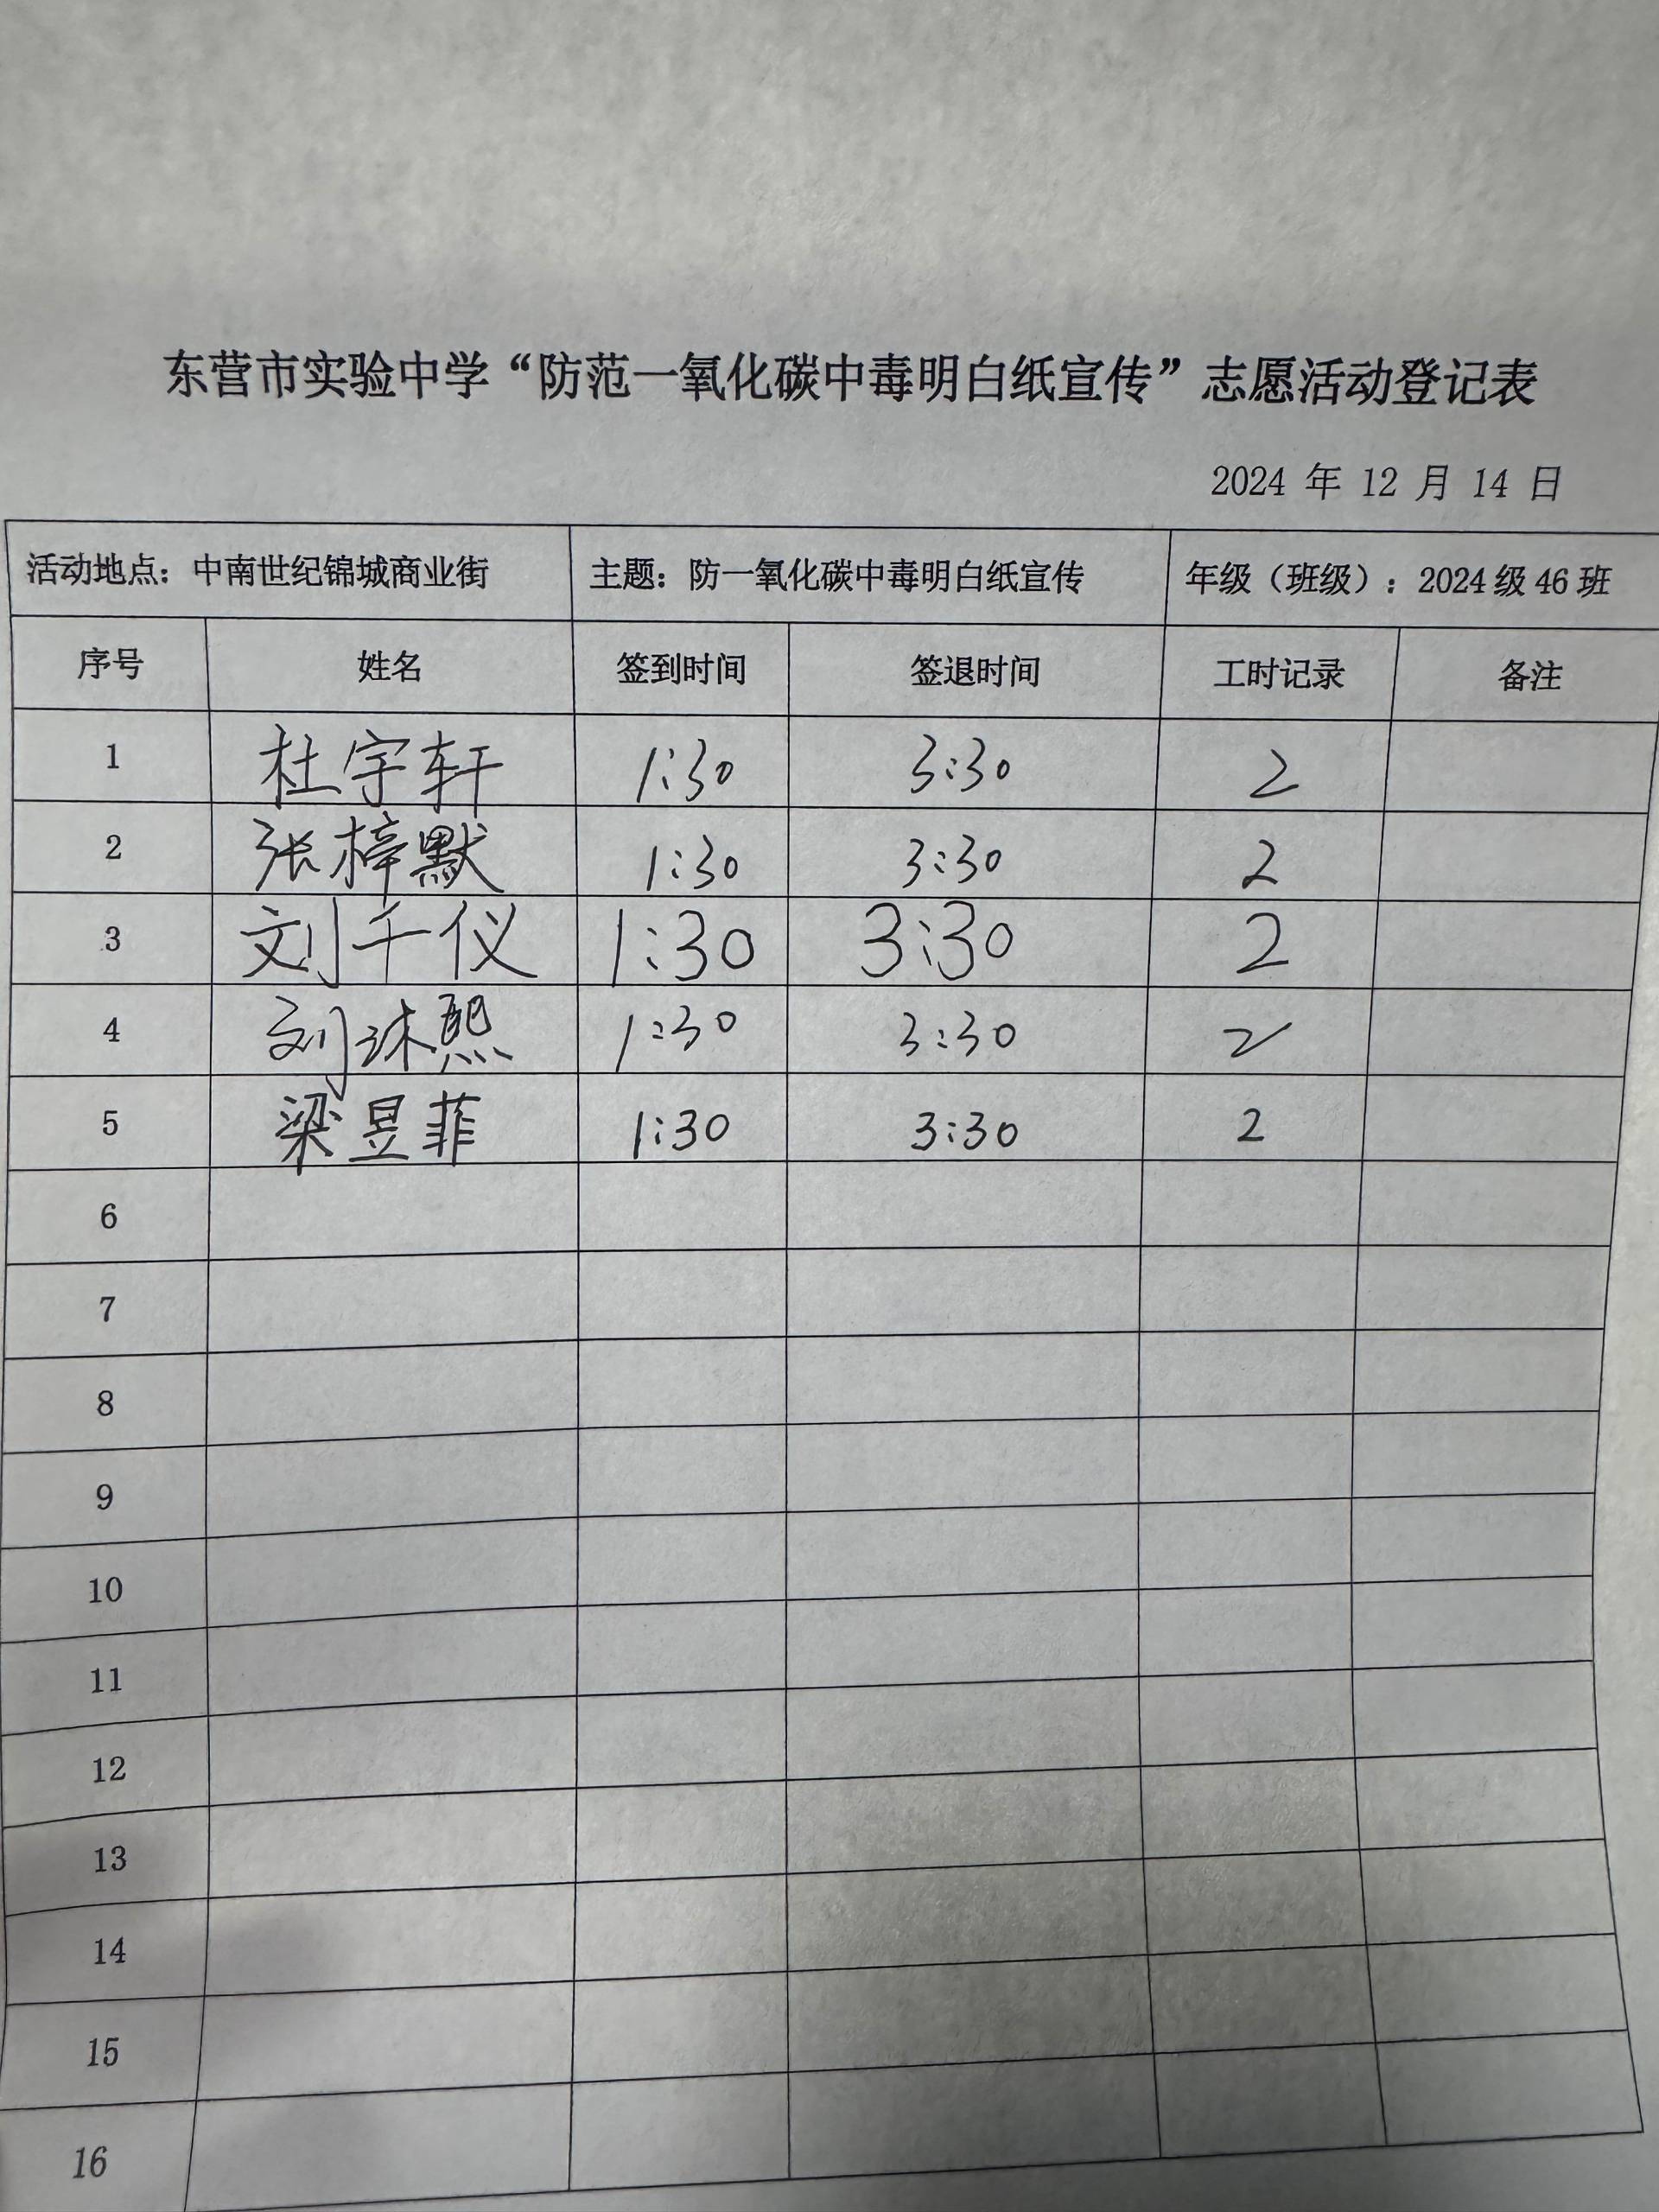 东营市实验中学“防范一氧化碳中毒明白纸宣传”志愿活动登记表
2024 年 12 月 14 日
活动地点：中南世纪锦城商业街 主题：防一氧化碳中毒明白纸宣传 年级（班级）：2024级46班
序号 姓名 签到时间 签退时间 工时记录 备注
1 杜宇轩 1:30 3:30 2
2 张梓默 1:30 3:30 2
3 刘千仪 1:30 3:30 2
4 刘沐熙 1:30 3:30 2
5 梁昱菲 1:30 3:30 2
6
7
8
9
10
11
12
13
14
15
16